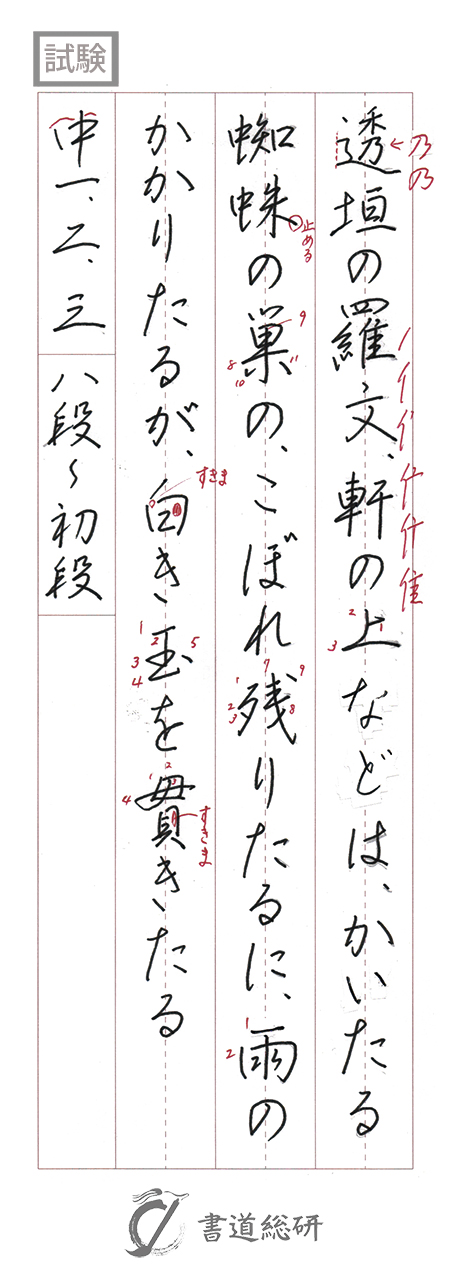 試験
透垣の羅文、軒の上などは、かいたる
蜘蛛の巣の、こぼれ残りたるに、雨の
かかりたるが、白き玉を貫きたる
伊一、二、三
八段〜初段
乃
乃
止める
すきま
すきま
書道総研